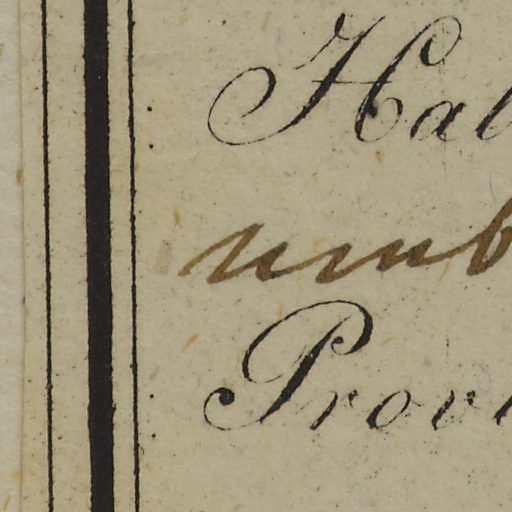 Hal
umb
Prov